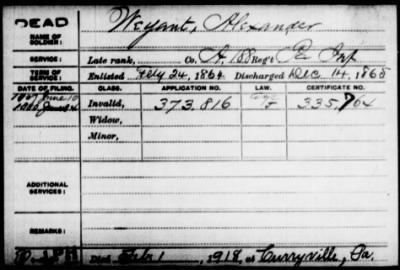 DEAD
Weyant, Alexander
NAME OF SOLDIER:
SERVICE: Late rank, Co. A, 188 Reg't Pa Inf
TERM OF SERVICE: Enlisted Feby 24, 1864 Discharged Dec. 14, 1865
DATE OF FILING. CLASS. APPLICATION NO. LAW. CERTIFICATE NO.
June
Invalid, 373,816 335,704
Widow,
Minor,
ADDITIONAL SERVICES:
REMARKS:
Died Feb 1, 1918, at Curryville, Pa.